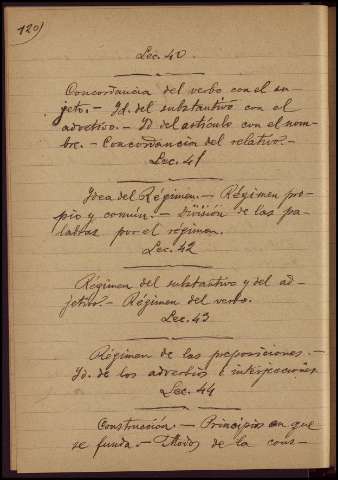 120)
Lec. 40
Concordancia del verbo con el su-
jeto. - Id. del substantivo con el
adjetivo. - Id del artículo con el nom-
bre. - Concordancia del relativo. -
Lec. 41
Idea del Régimen. - Régimen pro-
pio y común. - División de las pa-
labras por el régimen.
Lec. 42
Régimen del substantivo y del ad-
jetivo. - Régimen del verbo.
Lec. 43
Régimen de las preposiciones. -
Id. de los adverbios é interjecciones
Lec. 44
Construcción. - Principios en que
se funda. - Modos de la cons-